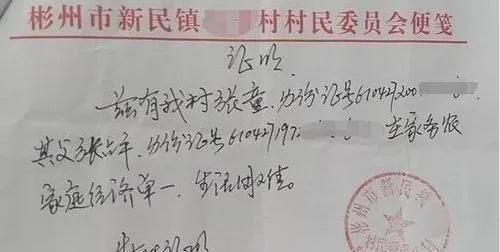 彬州市新民镇 村村民委员会便笺
证明
兹有我村张童,身份证号610427200
其父张占平,身份证号610427197 在家务农
家庭经济单一,生活困难。
特此证明
彬州市新民镇
村民委员会